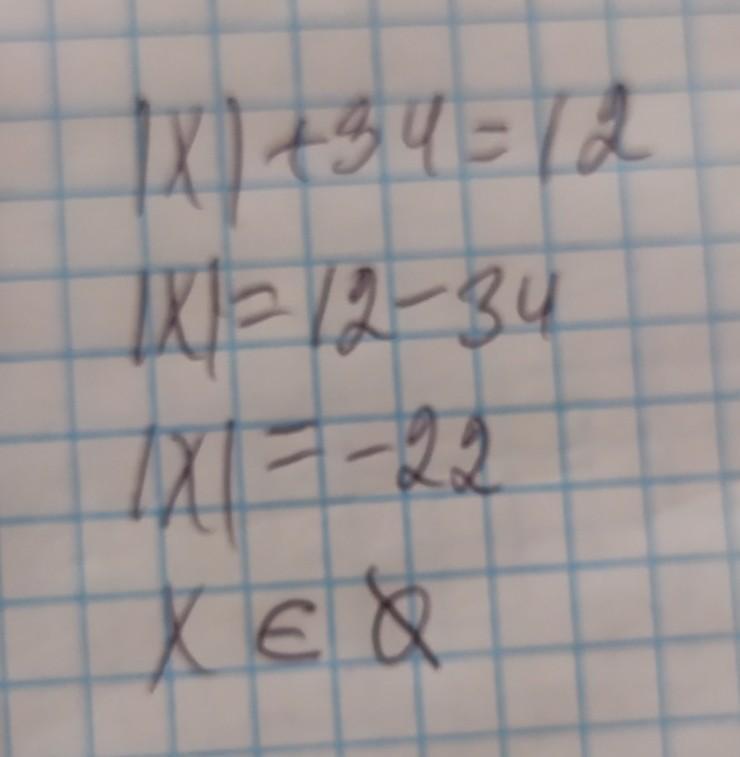 |x|+34=12
|x|=12-34
|x|=-22
x ∈ ∅